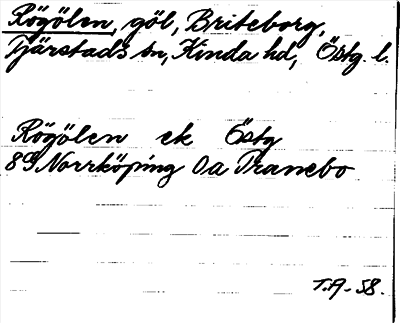 Rögölen, göl, Briteborg,
Tjärstads sn, Kinda hd, Östg. l.
Rögölen ek Östg
8G Norrköping 0a Tranebo
T.A-58.